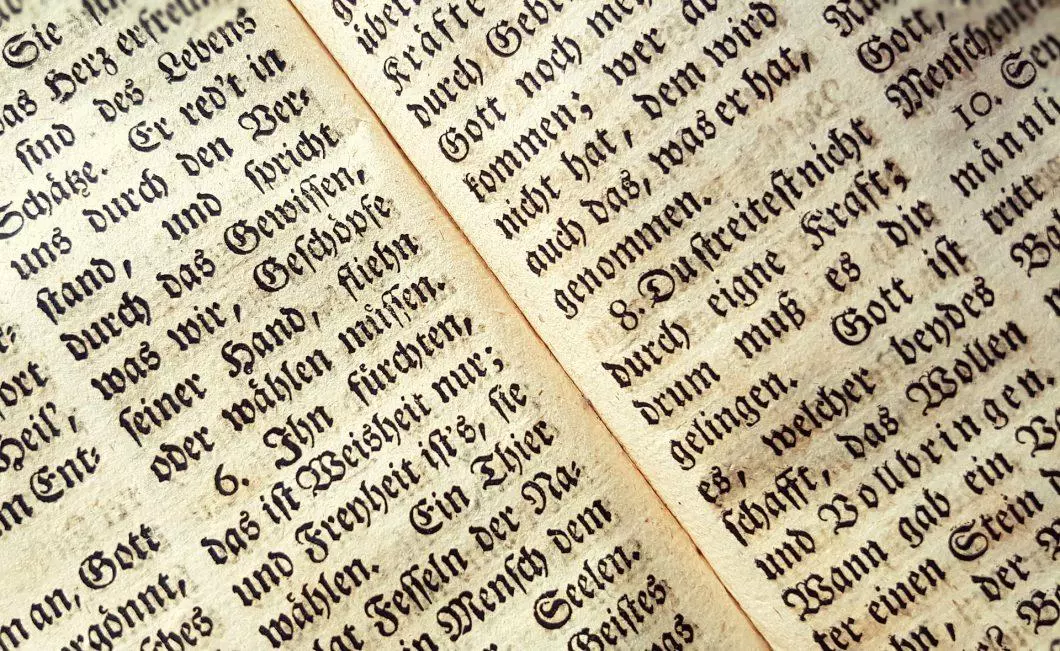 Sie
das Herz erfreun
sind des Lebens
Schätze. Er red't in
uns durch den Ver-
stand, und spricht
durch das Gewissen,
was wir, Geschöpfe
seiner Hand, fliehn
oder wählen müssen.
6. Ihn fürchten,
das ist Weisheit nur;
und Freyheit ist's, sie
wählen. Ein Thier
Fesseln der Na-
Mensch dem
Seelen.
Geistes
Heil',
Ent-
an, Gott
ergönnt,
Kräfte
durch
Gott noch
kommen; wer
nicht hat, dem wird
auch das, was er hat,
genommen.
8. Du streitest nicht
durch eigne Kraft;
drum muß es dir
gelingen. Gott ist
es, welcher beydes
schafft, das Wollen
und Vollbringen.
Wann gab ein
einen Stein
der
Gott,
10.
tritt